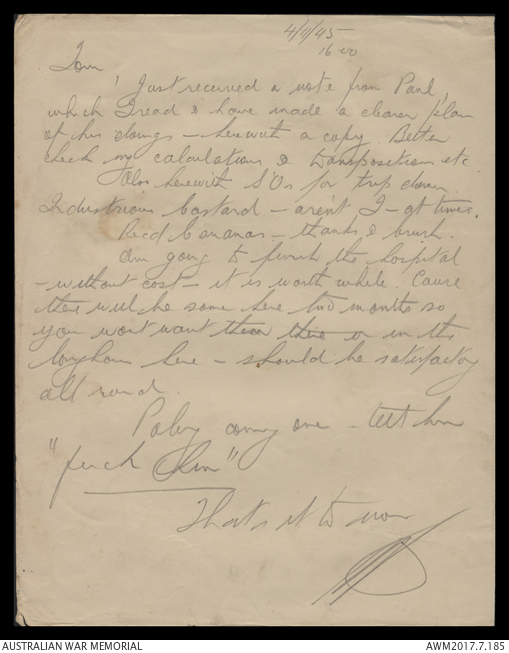 4/9/45
16 00
Tom,
Just received a note from Paul,
which I read & have made a clearer plan
of his doings - herewith a copy. Better
check my calculations & transpositions etc
Also herewith S'Os for trip down.
Industrious bastard - aren't I - at times.
Recd bananas - thanks & brush.
Am going to finish the hospital
- without cost - it is worth while. Cause
there will be some here two months so
you wont want them there or in the
longhouse here - should be satisfactory
all round.
coming one - tell him
"
That's it to now
AUSTRALIAN WAR MEMORIAL
AWM2017.7.185